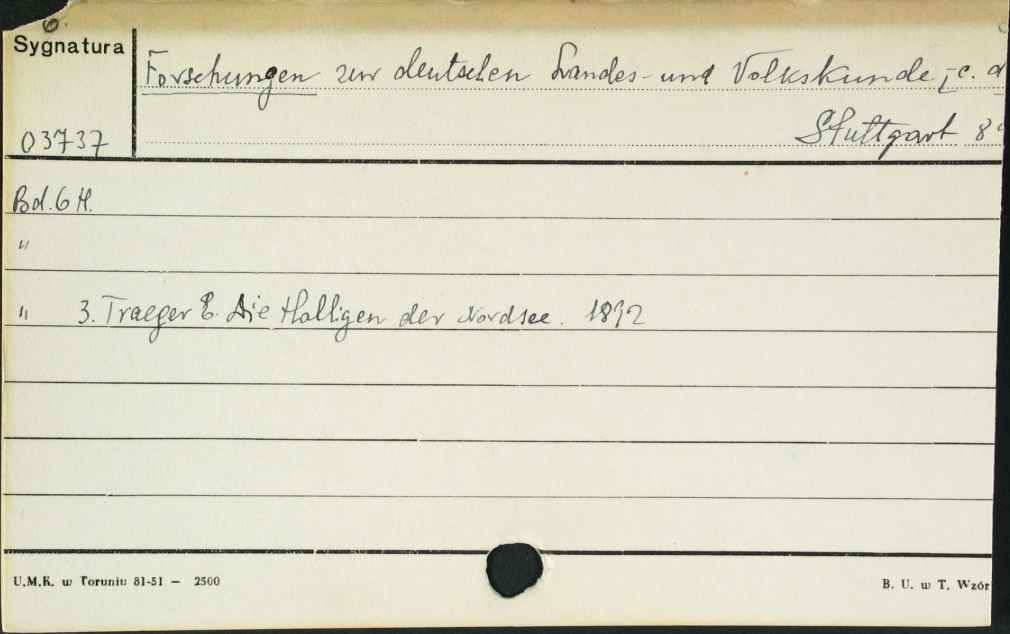 6.
Sygnatura
Forschungen zur deutschen Landes- und Volkskunde, [c. d
03737
Stuttgart 8°
Bd. 6 H.
"
" 3. Traeger E. Die Halligen der Nordsee. 1892
U.M.K. w Toruniu 81-51 — 2500
B. U. w T. Wzór